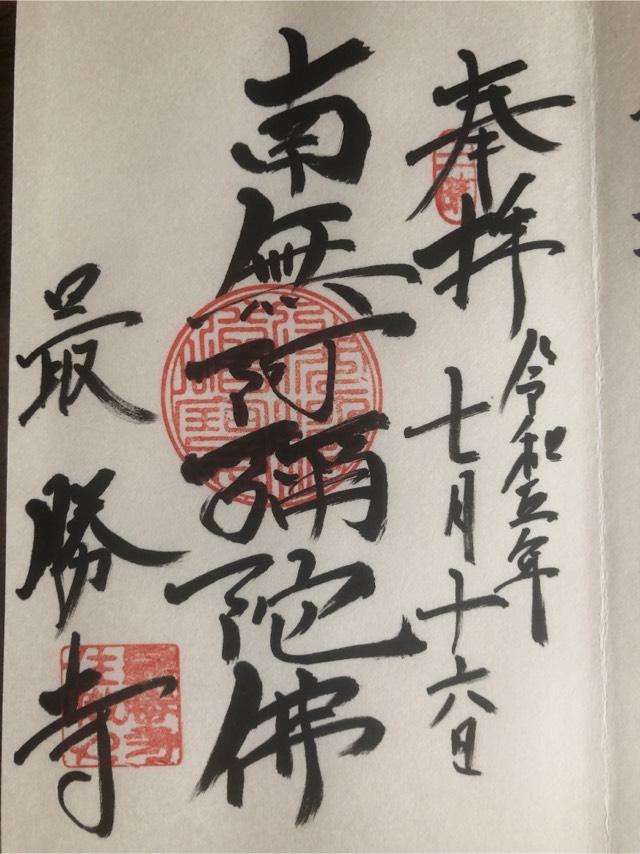 奉拝
令和五年
七月十六日
南無阿彌陀佛
最勝寺